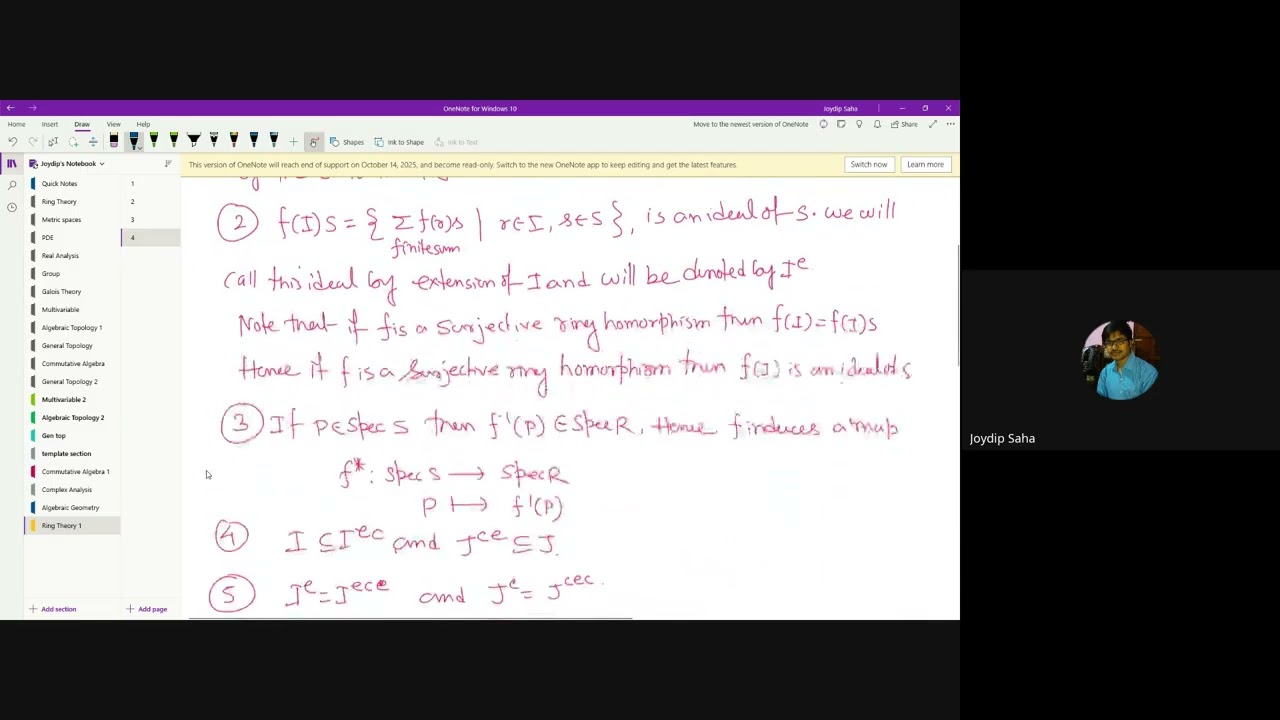 OneNote for Windows 10
Joydip Saha
Home Insert Draw View Help
Move to the newest version of OneNote
Share
Shapes Ink to Shape Ink to Text
Joydip's Notebook
This version of OneNote will reach end of support on October 14, 2025, and become read-only. Switch to the new OneNote app to keep editing and get the latest features.
Switch now Learn more
Quick Notes
Ring Theory
Metric spaces
PDE
Real Analysis
Group
Galois Theory
Multivariable
Algebraic Topology 1
General Topology
Commutative Algebra
General Topology 2
Multivariable 2
Algebraic Topology 2
Gen top
template section
Commutative Algebra 1
Complex Analysis
Algebraic Geometry
Ring Theory 1
+ Add section
1
2
3
4
+ Add page
② f(I)S = { Σ f(r)s | r∈I, s∈S }, is an ideal of S. we will
finite sum
call this ideal by extension of I and will be denoted by Iᵉ
Note that if f is a surjective ring homorphism then f(I)=f(I)S
Hence if f is a surjective ring homorphism then f(I) is an ideal of S
③ If P∈Spec S then f⁻¹(P) ∈ Spec R. Hence f induces a map
f*: Spec S → Spec R
P ↦ f⁻¹(P)
④ I ⊆ Iᵉᶜ and Jᶜᵉ ⊆ J.
⑤ Iᵉ = Iᵉᶜᵉ and Jᶜ = Jᶜᵉᶜ.
Joydip Saha